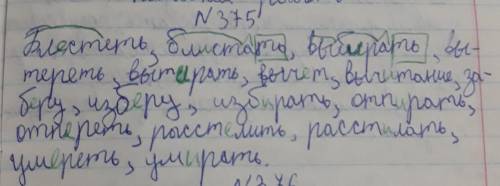 №375
Блестеть, блистать, выбирать, вы-
тереть, вытирать, вычет, вычитание, за-
беру, изберу, избирать, отпирать,
отпереть, расстелить, расстилать,
умереть, умирать.
№376